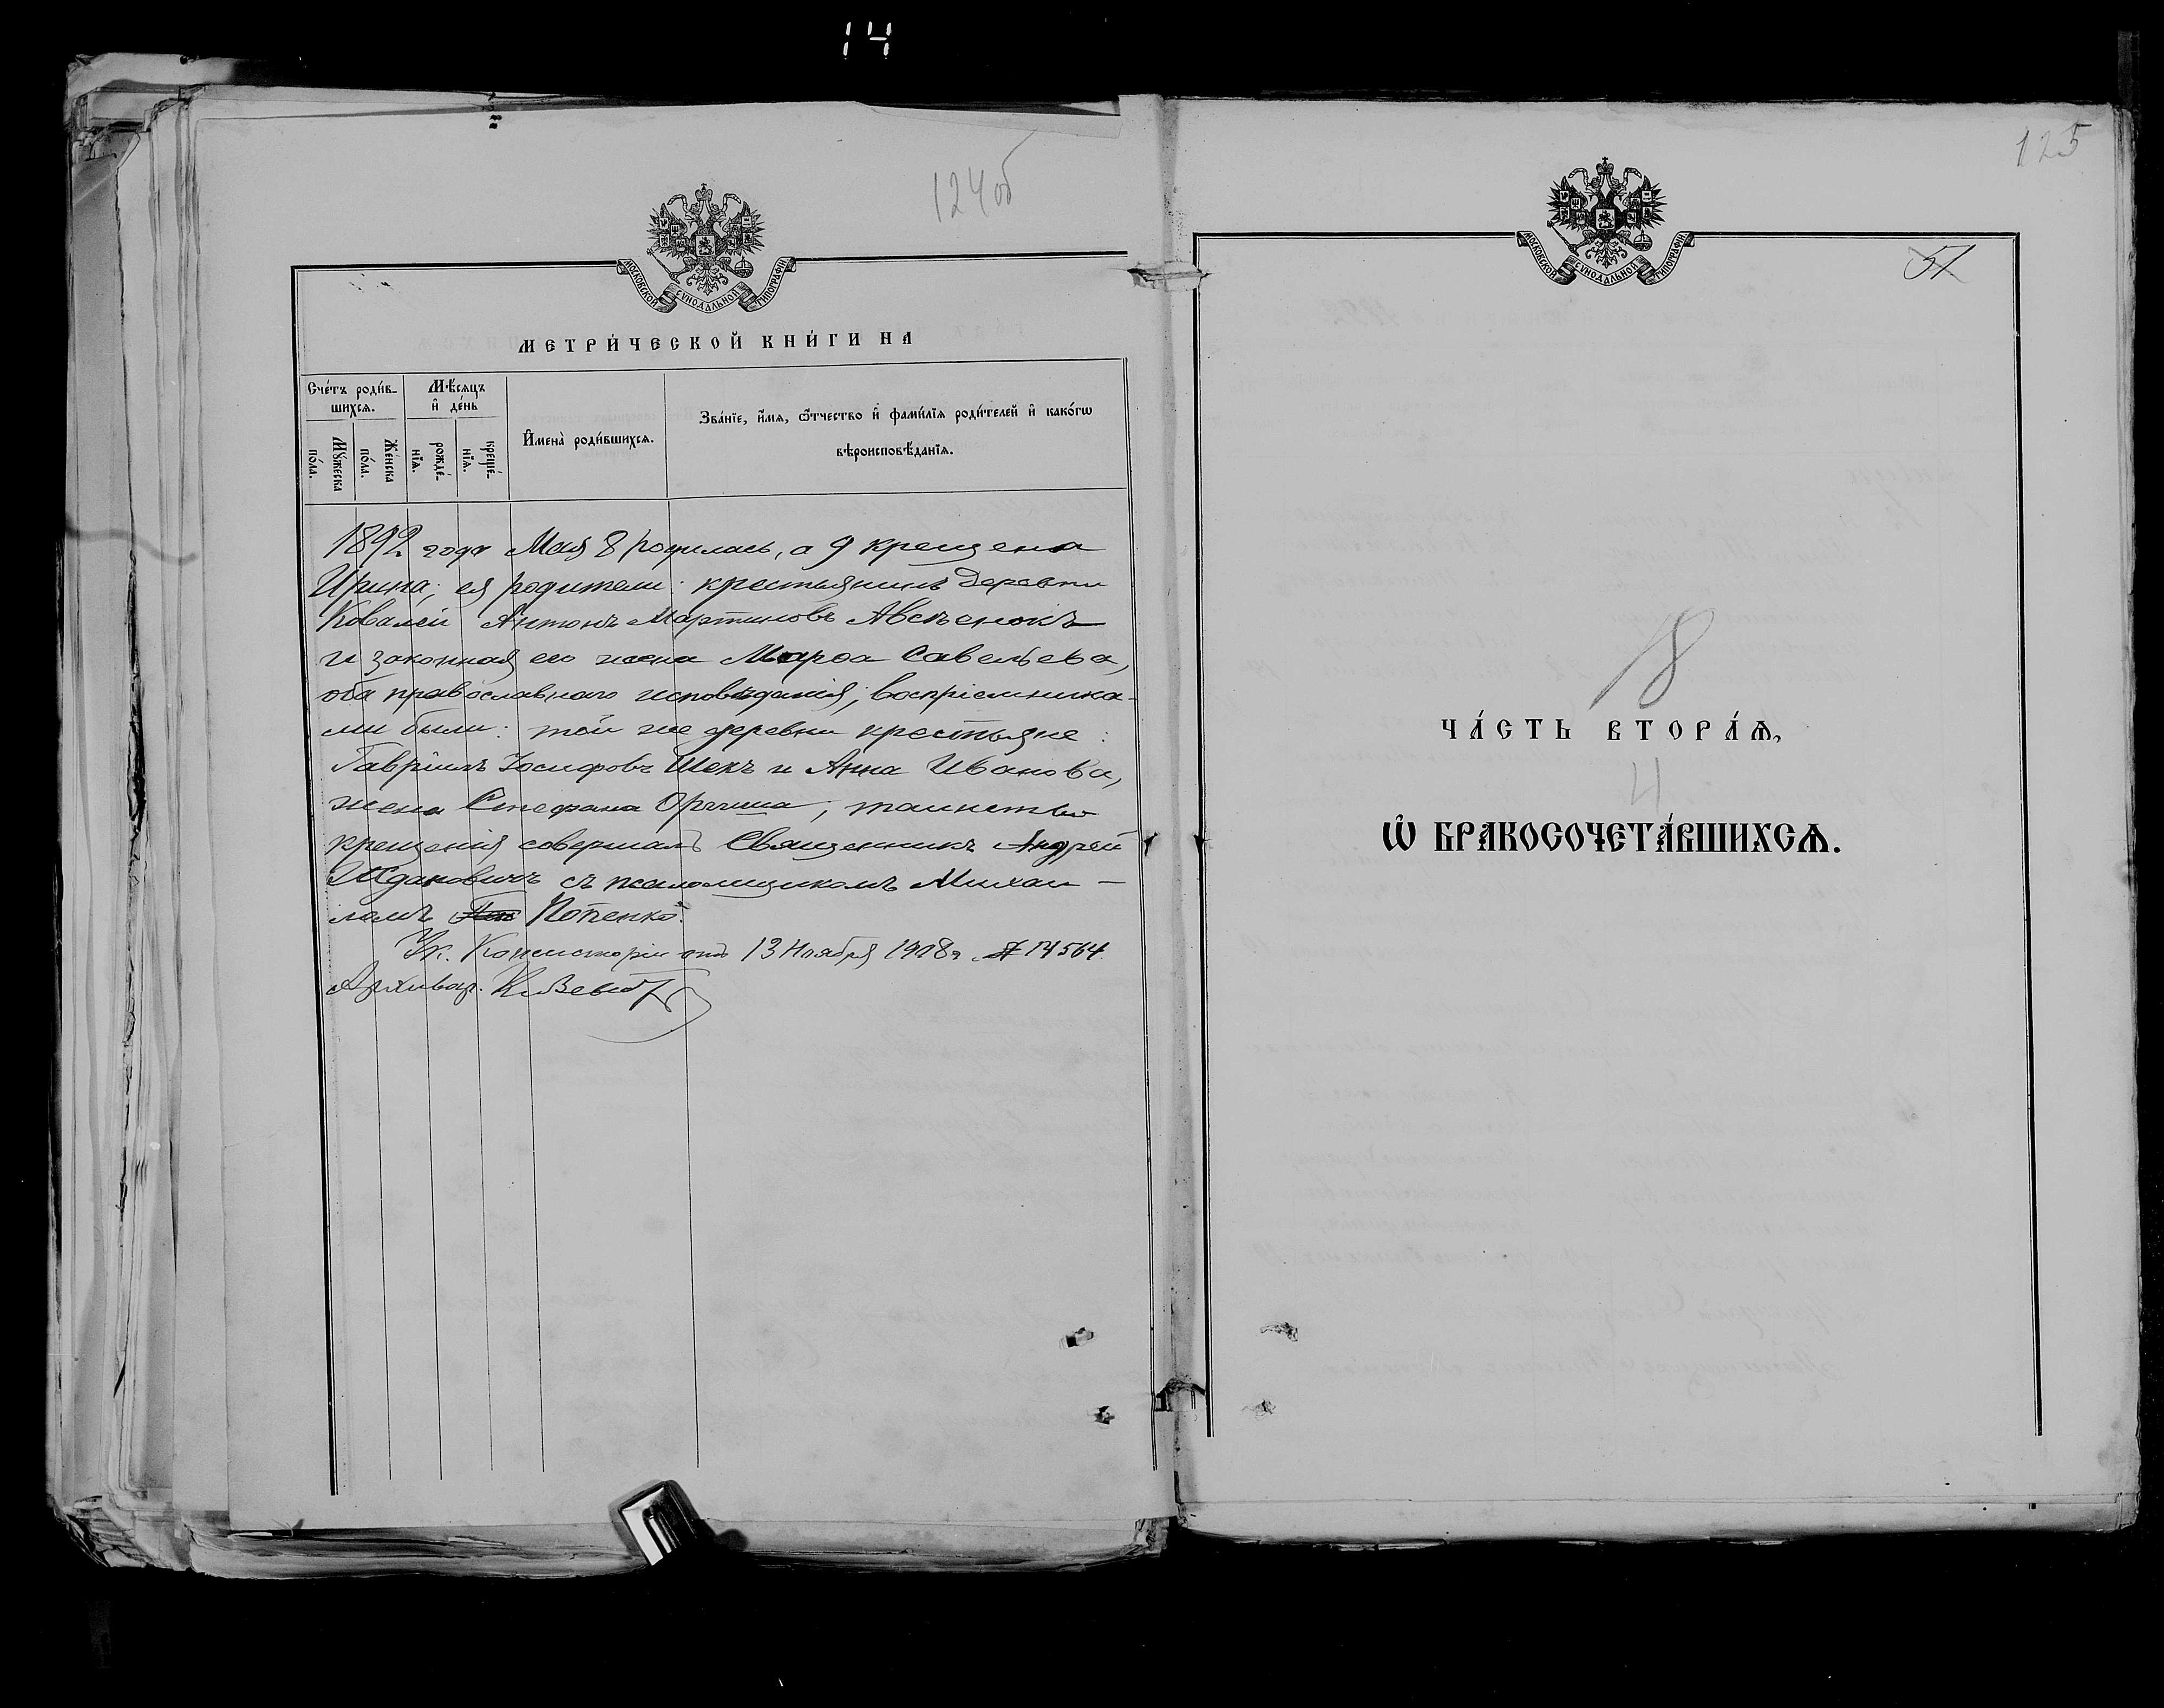 14
124 об
МОСКОВСКОЙ СУНОДАЛЬНОЙ ТИПОГРАФІИ
МЕТРИ́ЧЕСКОЙ КНИ́ГИ НА
Сче́тъ роди́в-
шихся.
Мѣ́сяцъ
и҆ де́нь
И҆мена̀ роди́вшихся.
Зва́нїе, и҆́мя, ѻ҆́тчество и҆ фами́лїя роди́телей и҆ како́гѡ
вѣроисповѣ́данїя.
Мꙋ́жеска
по́ла.
Же́нска
по́ла.
рожде́-
нїя.
креще́-
нїя.
1892 года Мая 8 родилась, а 9 крещена
Ирина; ея родители: крестьянинъ деревни
Ковалей Антонъ Мартиновъ Авсѣенокъ
и законная его жена Марѳа Савельева,
оба православнаго исповѣданія; воспріемника-
ми были: той же деревни крестьяне:
Гавріилъ Іосифовъ Шекъ и Анна Иванова,
жена Стефана; таинство
крещенія совершалъ Священникъ Андрей
Ждановичъ съ псаломщикомъ Михаи-
ломъ Потенко.
Ук. Консисторіи отъ 13 Ноября 1908 г. № 14564.
Архивар.
125
57
МОСКОВСКОЙ СУНОДАЛЬНОЙ ТИПОГРАФІИ
18
ЧА́СТЬ ВТОРА́Ѧ,
4
Ѽ БРАКОСОЧЕТА́ВШИХСѦ.